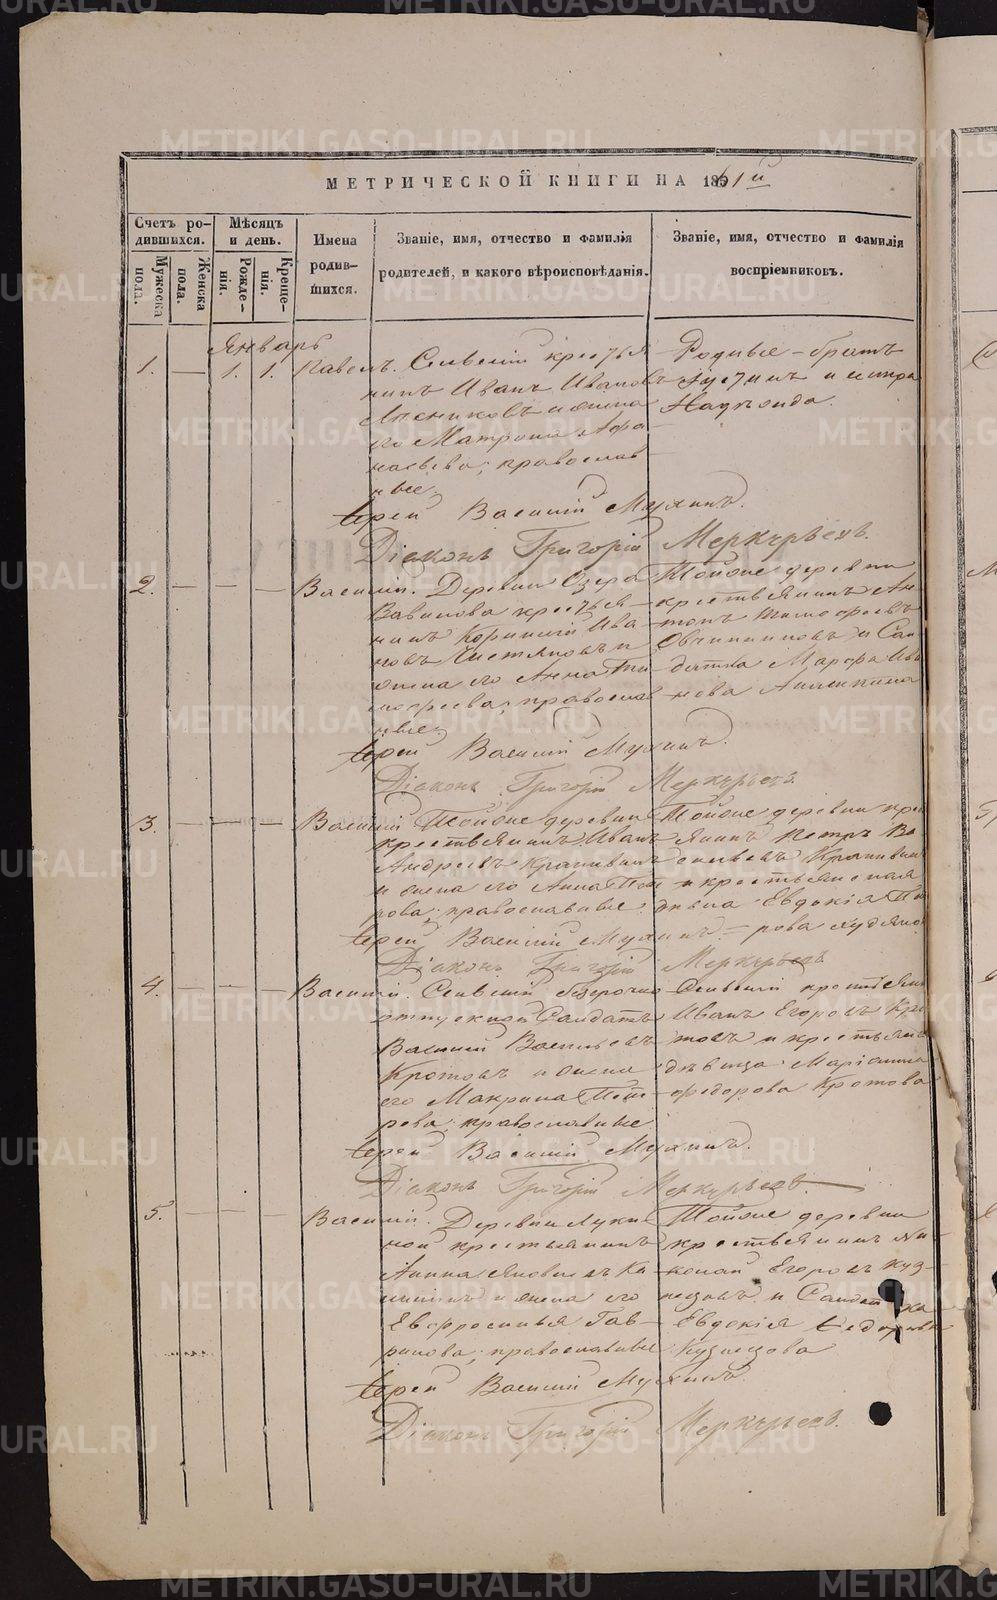 МЕТРИЧЕСКОЙ КНИГИ НА 1861й
Счетъ родившихся.
Мужеска пола.
Женска пола.
Мѣсяцъ и день.
Рожденія.
Крещенія.
Имена родившихся.
Званіе, имя, отчество и фамилія родителей, и какого вѣроисповѣданія.
Званіе, имя, отчество и фамилія воспріемниковъ.
Январь
1. — 1. 1. Павелъ.
крестья-
нинъ Иванъ Ивановъ
Лѣсниковъ и жена
его Матрона Афа-
насьева, православ-
ные.
Родные - братъ
и сестра
Іерей Василій Мухинъ.
Діаконъ Григорій Меркурьевъ.
2. — — — Василій.
Деревни Озера
Вавилова крестья-
нинъ Ива-
новъ и
жена его Анна Ти-
мофеева, православ-
ные.
Тойже деревни
крестьянинъ Ан-
тонъ Тимофеевъ
Овчинниковъ и Сол-
датка Марфа Ива-
нова
Іерей Василій Мухинъ.
Діаконъ Григорій Меркурьевъ.
3. — — — Василій
Тойже деревни
крестьянинъ Иванъ
Андреевъ Крапивинъ
и жена его Анна Пет-
рова, православные.
Тойже деревни крес-
янинъ Петръ Ва-
сильевъ Крапивинъ
и крестьянская
дѣвица Евдокія Пет-
рова
Іерей Василій Мухинъ.
Діаконъ Григорій Меркурьевъ
4. — — — Василій.
безсрочно
отпускной Солдатъ
Василій Васильевъ
Кротовъ и жена
его Макрина Пет-
рова, православные
Иванъ Егоровъ Кро-
товъ и крестьянск
дѣвица Маріанна
Федорова Кротова
Іерей Василій Мухинъ.
Діаконъ Григорій Меркурьевъ.
5. — — — Василій.
Деревни Луки-
ной крестьянинъ
и жена его
Евфросинья Гав-
рилова, православные
Тойже деревни
крестьянинъ Ни-
колай Егоровъ Куз-
нецовъ и Солдатка
Евдокія Федорова
Кузнецова
Іерей Василій Мухинъ.
Діаконъ Григорій Меркурьевъ.
METRIKI.GASO-URAL.RU